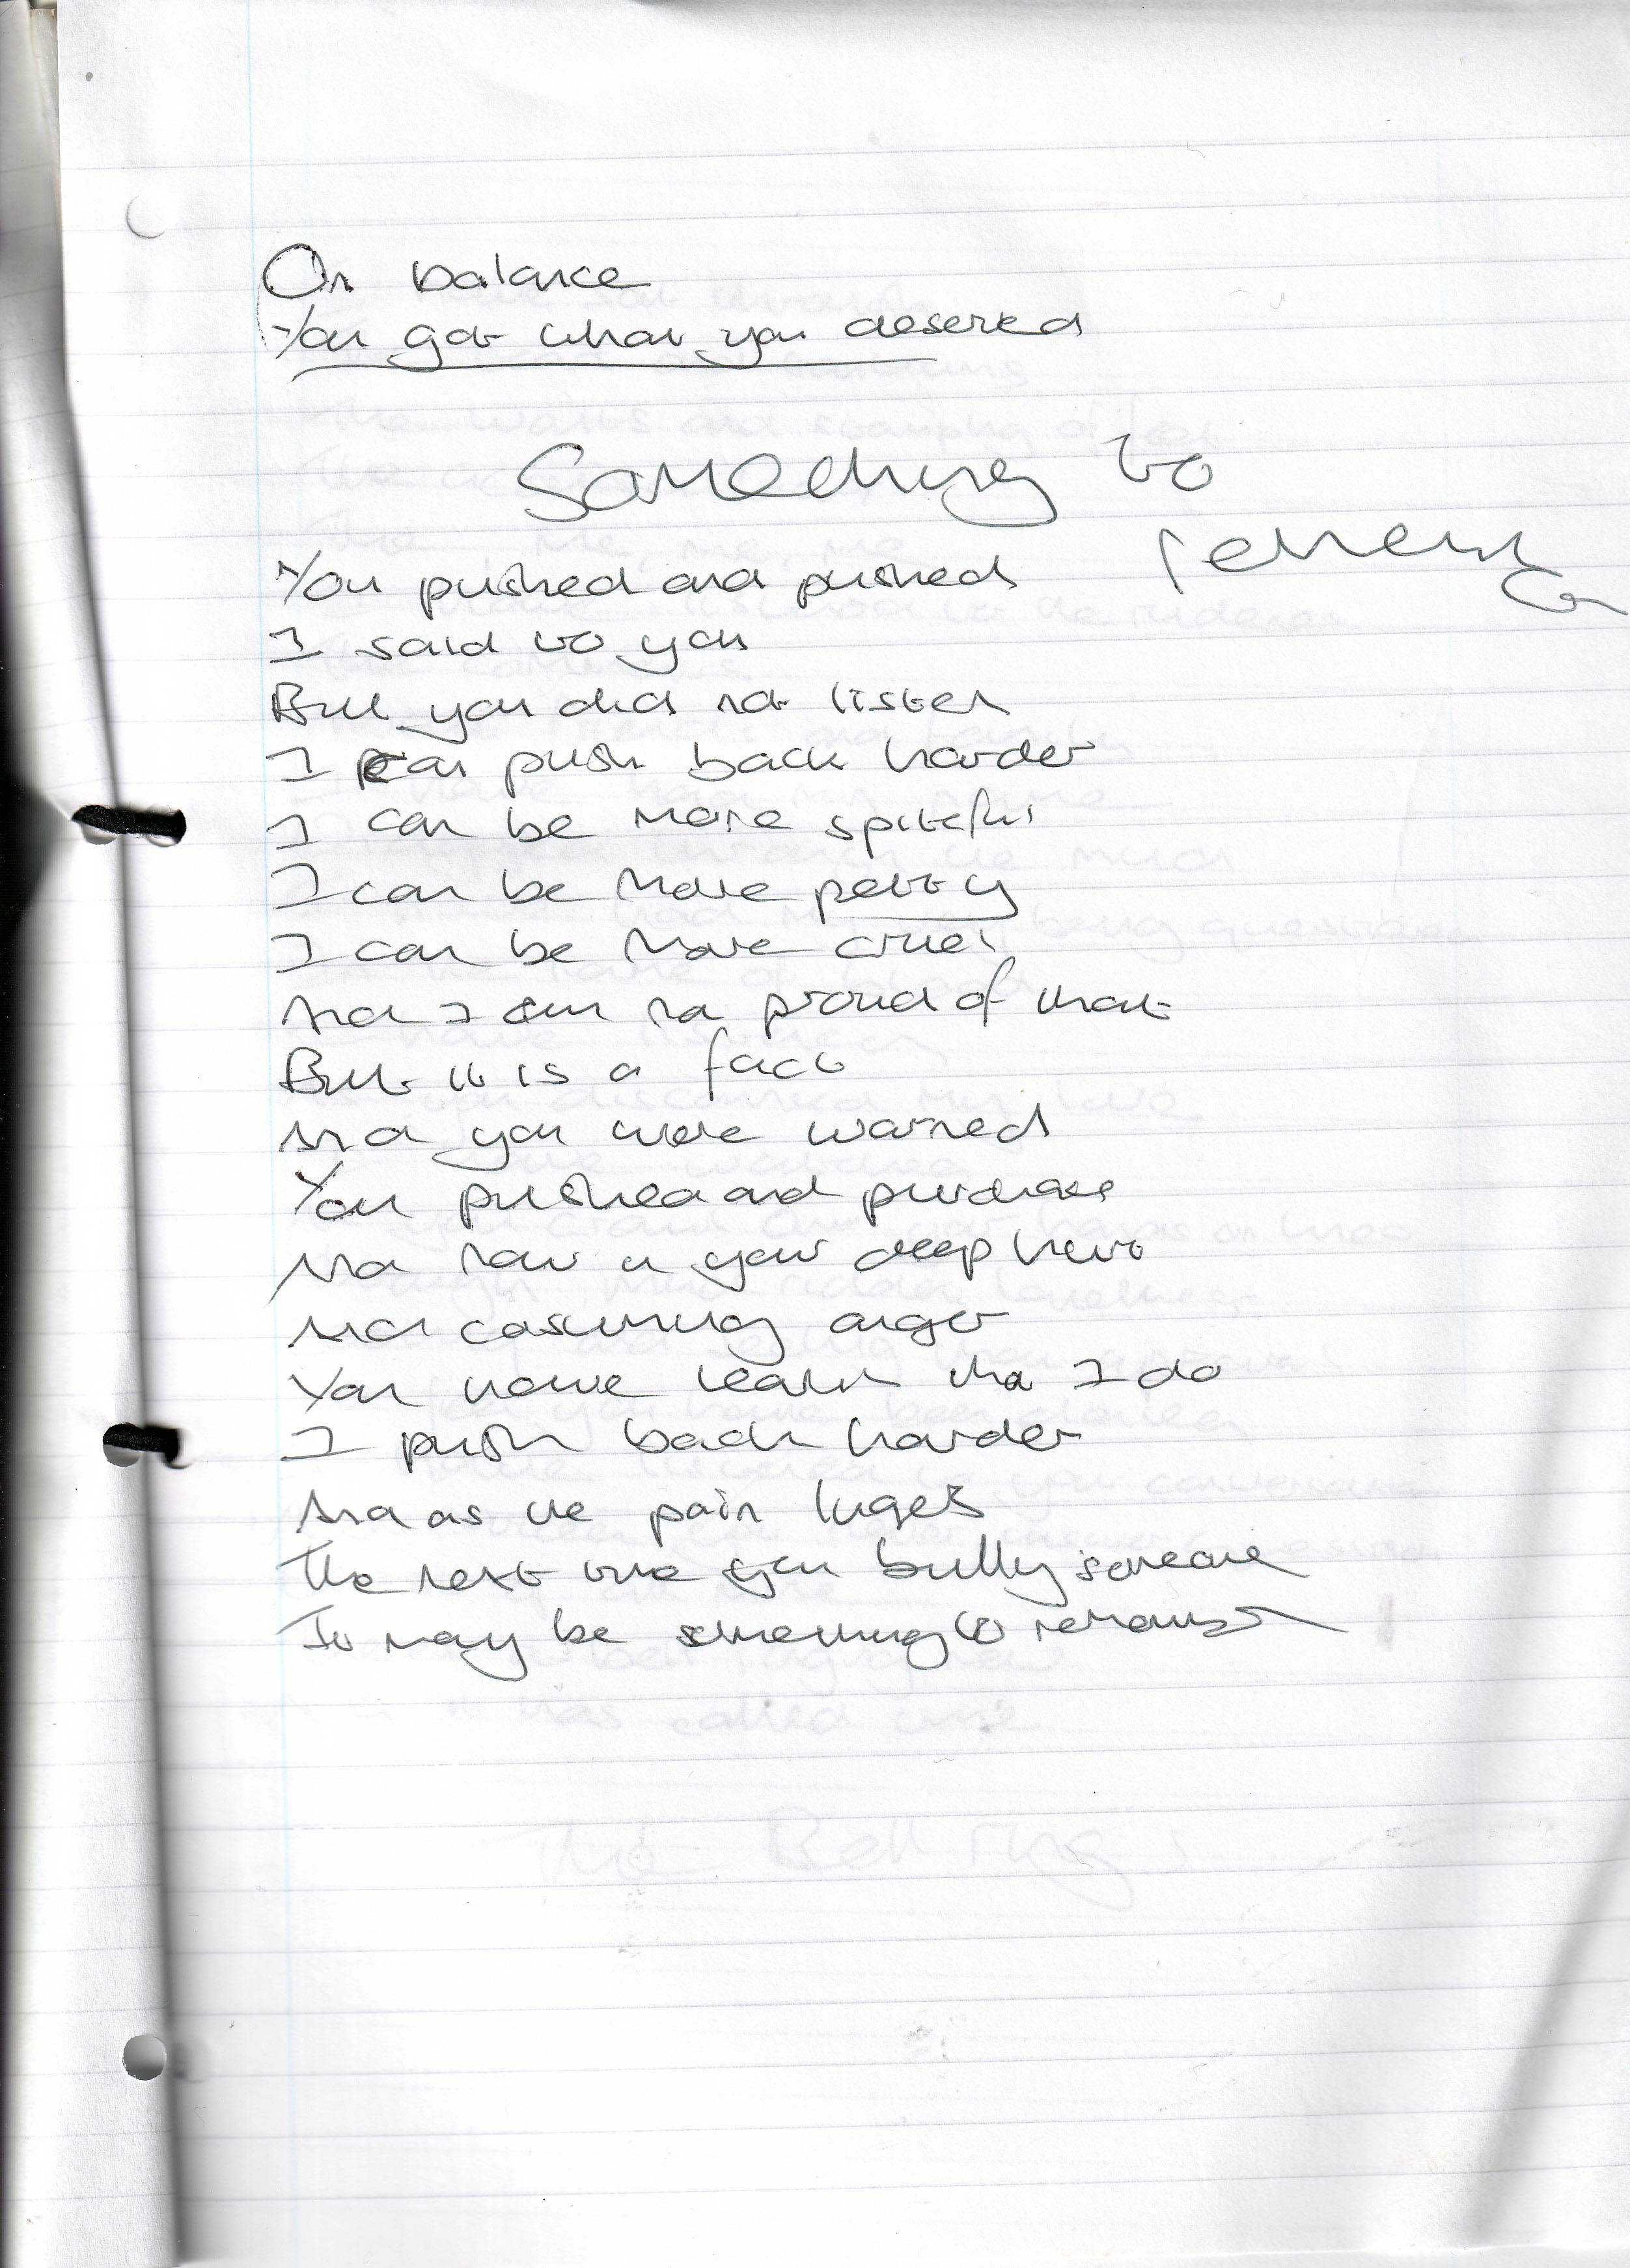 On balance
You got what you deserved
Something to
remember
You pushed and pushed
I said to you
But you did not listen
I can push back harder
I can be more spiteful
I can be more petty
I can be more cruel
And I am no proud of that
But it is a fact
And you were warned
You pushed and
And now in your deep hurt
And consuming anger
You have learnt tha I do
I push back harder
And as the pain lingers
The next time you bully someone
It may be something to remember